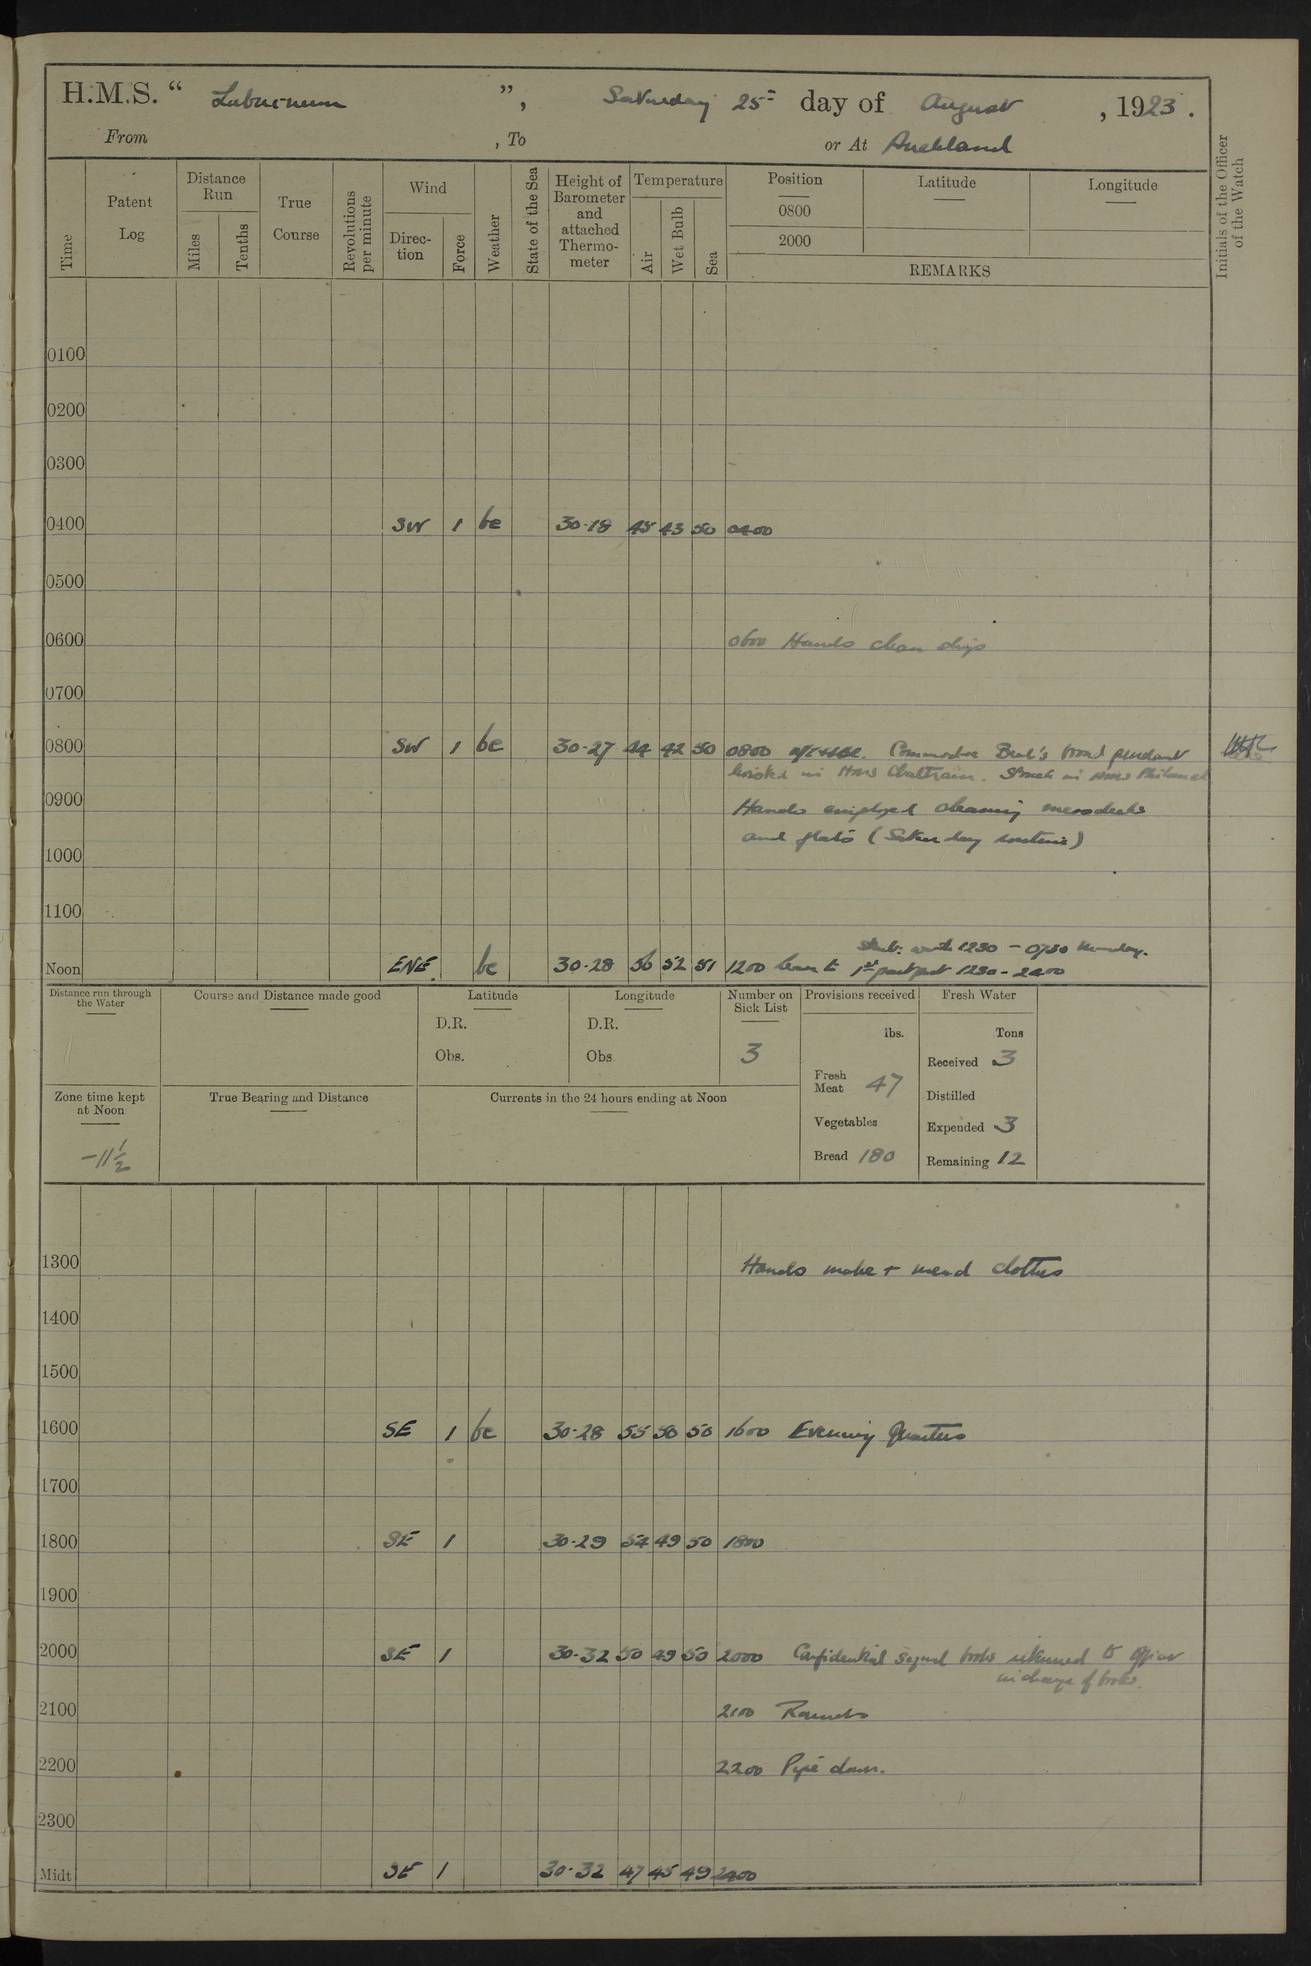 H.M.S. “ Laburnum ”, Saturday 25th day of August, 1923.
From , To or At Auckland
Time
Patent Log
Distance Run
Miles
Tenths
True Course
Revolutions per minute
Wind
Direc-tion
Force
Weather
State of the Sea
Height of Barometer and attached Thermo-meter
Temperature
Air
Wet Bulb
Sea
Position
0800
2000
Latitude
Longitude
REMARKS
Initials of the Officer of the Watch
0100
0200
0300
0400 SW 1 bc 30·18 45 43 50 0400
0500
0600 0600 Hands clean ship
0700
0800 SW 1 bc 30·27 44 42 50 0800 Commodore Beal's broad pendant
hoisted in HMS Chatham. Struck in HMS Philomel
0900 Hands employed cleaning messdecks
and flats (Saturday routine)
1000
1100
1230 - 0730 Monday.
Noon ENE bc 30·28 56 52 51 1200 Leave to 1st part port 1230 - 2400
Distance run through the Water
Course and Distance made good
Latitude
D.R.
Obs.
Longitude
D.R.
Obs.
Number on Sick List
3
Provisions received
lbs.
Fresh Meat 47
Vegetables
Bread 180
Fresh Water
Tons
Received 3
Distilled
Expended 3
Remaining 12
Zone time kept at Noon
-11½
True Bearing and Distance
Currents in the 24 hours ending at Noon
1300 Hands make + mend clothes
1400
1500
1600 SE 1 bc 30·28 55 50 50 1600 Evening Quarters
1700
1800 SE 1 30·29 54 49 50 1800
1900
2000 SE 1 30·32 50 49 50 2000 Confidential signal books returned to officer
in charge of books.
2100 2100 Rounds
2200 2200 Pipe down.
2300
Midt SE 1 30·32 47 45 49 2400